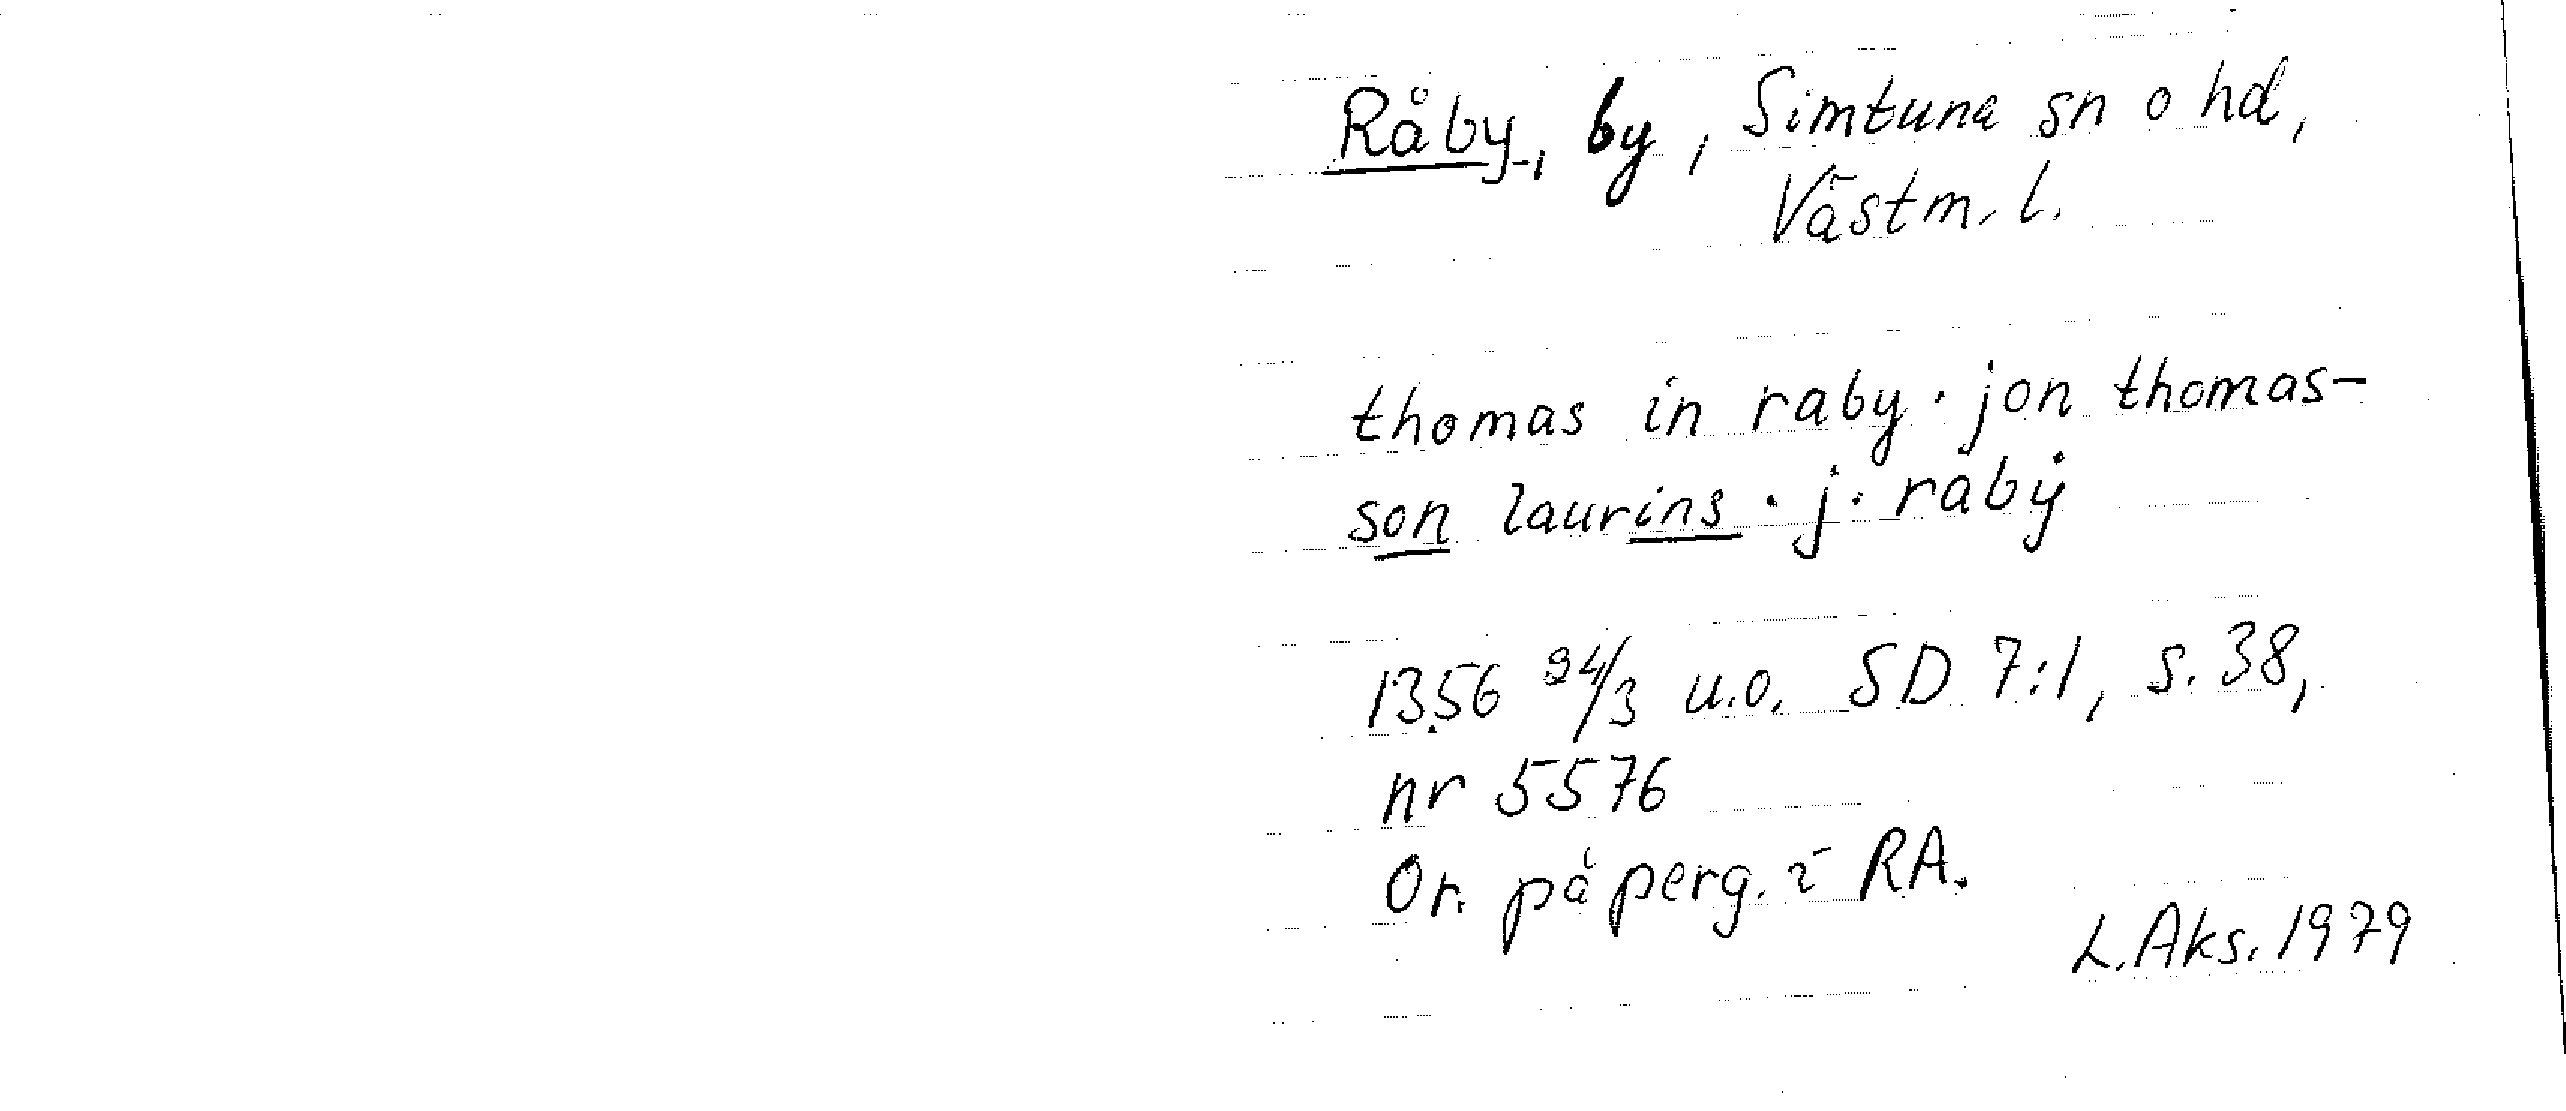 Råby, by, Simtuna sn o hd,
Västm. l.
thomas in raby · jon thomas-
son laurins · j · rabẏ
1356 24/3 u.o. SD 7:1, s. 38,
nr 5576
Or. på perg. i RA.
L. Aks. 1979